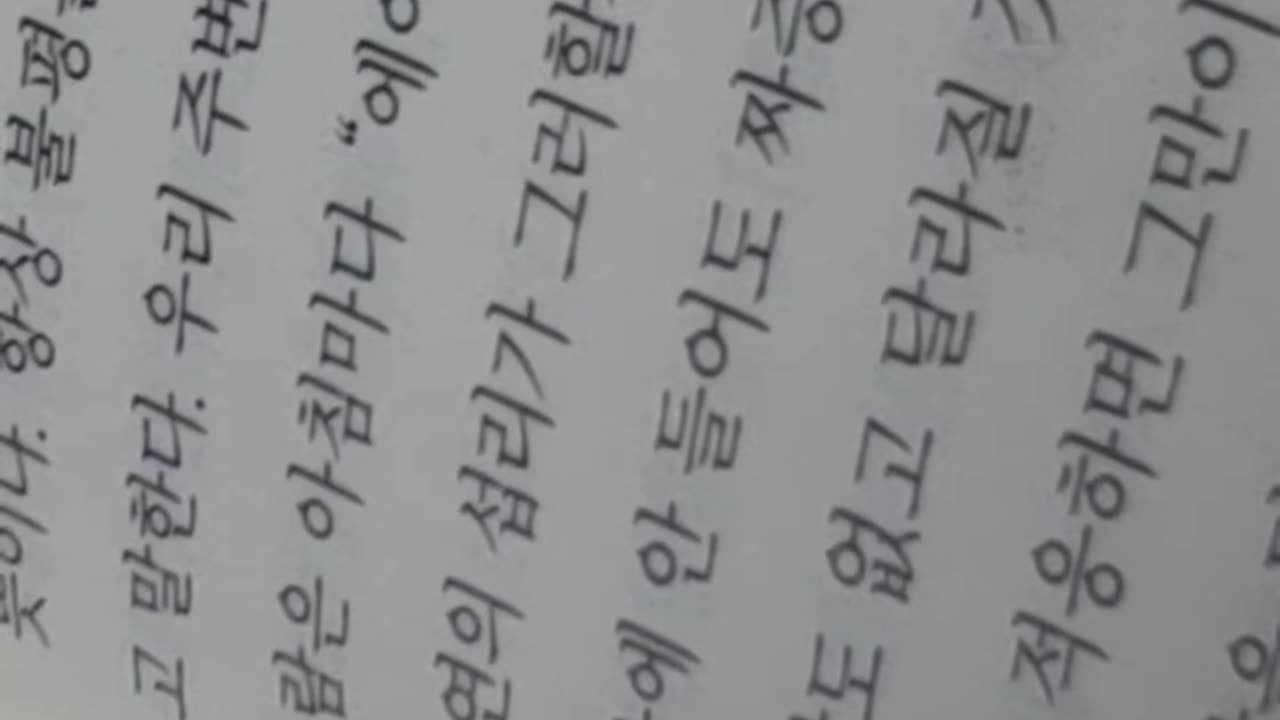 뜻이다. 항상 불평
고 말한다. 우리 주변
람은 아침마다 “에이
연의 섭리가 그러할
에 안 들어도 짜증
도 없고 달라질
적응하면 그만이